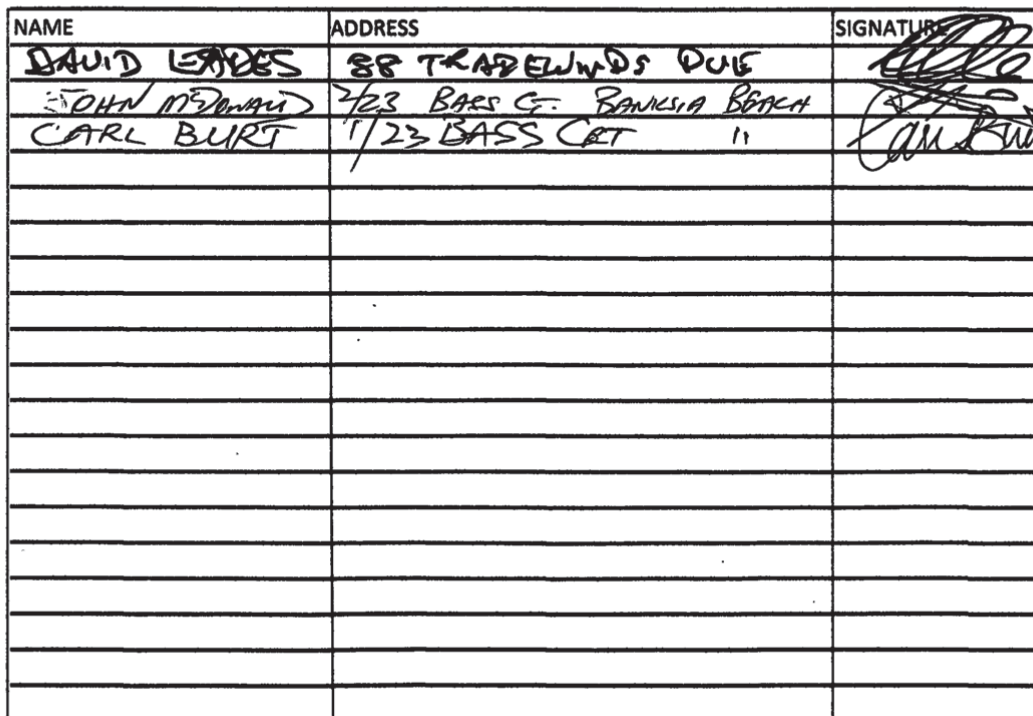 NAME ADDRESS SIGNATURE
DAVID LEADES 88 TRADEWINDS DVE
JOHN McDONALD 2/23 BASS CT. BANKSIA BEACH
CARL BURT 1/23 BASS CRT " Carl Burt